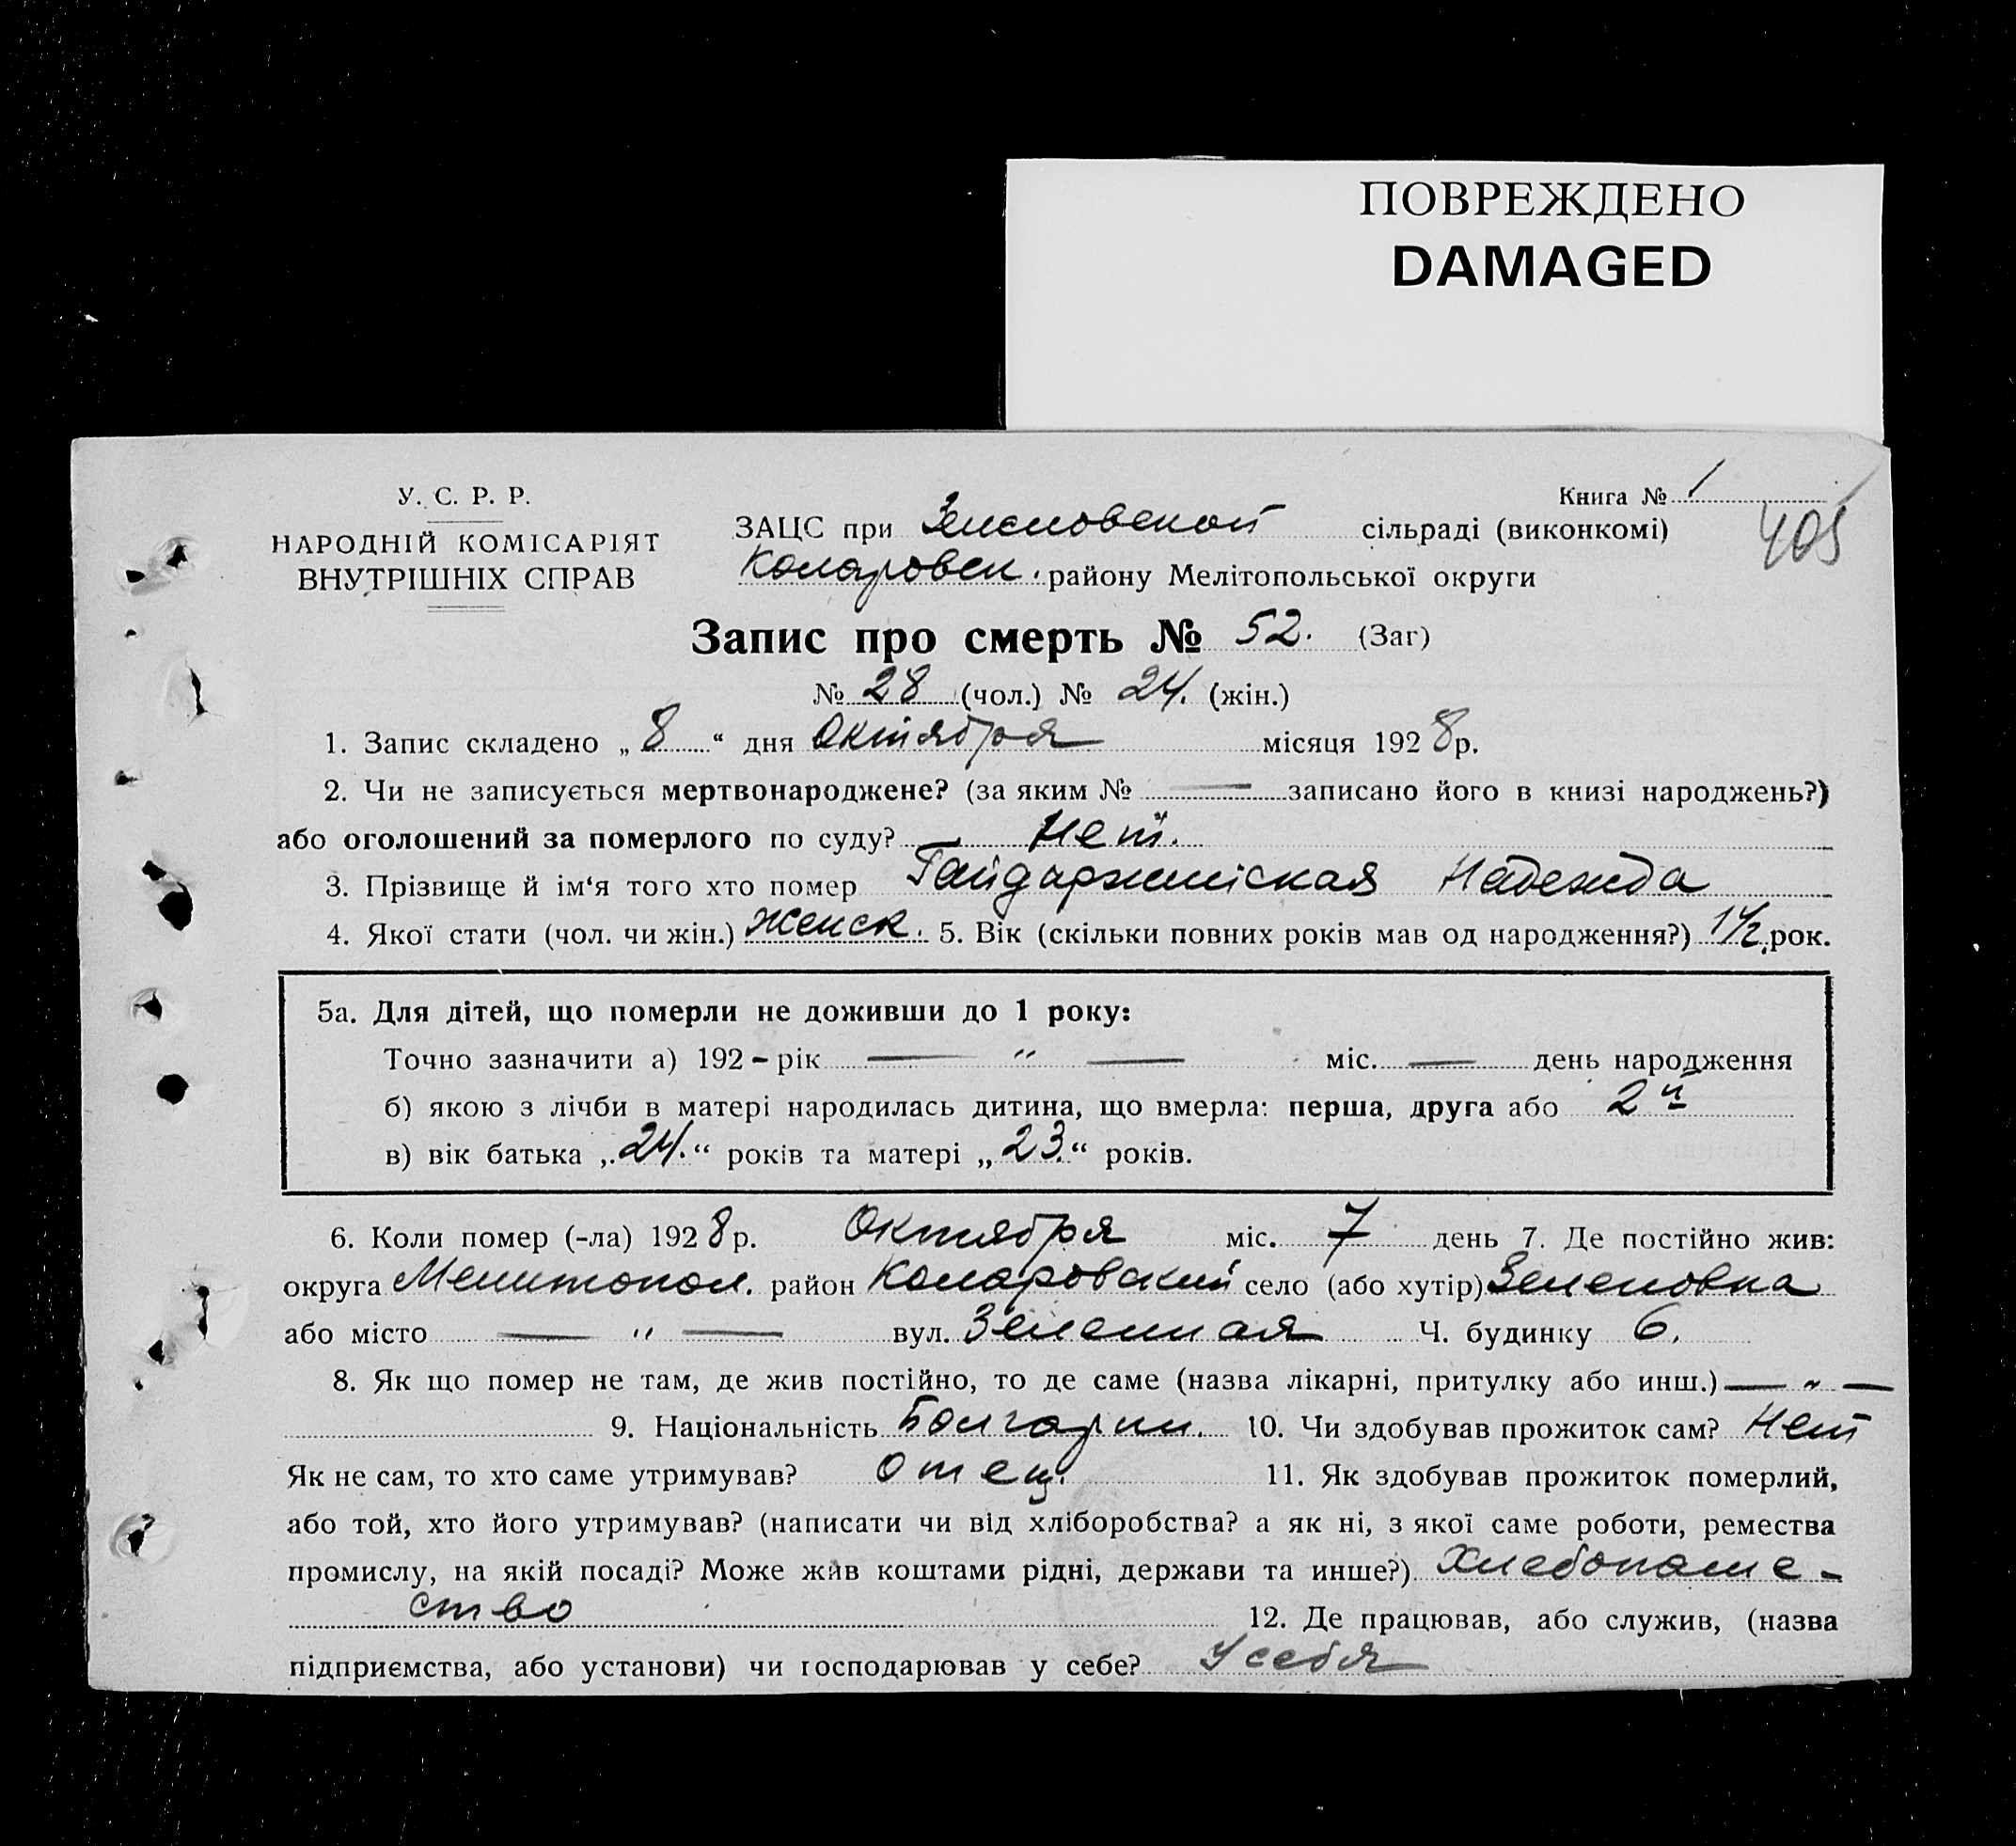 ПОВРЕЖДЕНО
DAMAGED
У. С. Р. Р.
НАРОДНІЙ КОМІСАРІЯТ
ВНУТРІШНІХ СПРАВ
Книга № 1
405
ЗАЦС при Зеленовской сільраді (виконкомі)
Коларовск. району Мелітопольської округи
Запис про смерть № 52. (Заг)
№ 28 (чол.) № 24. (жін.)
1. Запис складено „ 8 “ дня Октября місяця 1928 р.
2. Чи не записується мертвонароджене? (за яким № — записано його в книзі народжень?)
або оголошений за померлого по суду? Нет.
3. Прізвище й ім‘я того хто помер Надежда
4. Якої стати (чол. чи жін.) Женск. 5. Вік (скільки повних років мав од народження?) 1 1/2 рок.
5а. Для дітей, що померли не доживши до 1 року:
Точно зазначити а) 192 – рік — „ — міс. — день народження
б) якою з лічби в матері народилась дитина, що вмерла: перша, друга або 2й
в) вік батька „ 24. “ років та матері „ 23. “ років.
6. Коли помер (-ла) 1928 р. Октября міс. 7 день 7. Де постійно жив:
округа Мелитопол. район Коларовский село (або хутір) Зеленовка
або місто — „ — вул. Зеленная Ч. будинку 6.
8. Як що помер не там, де жив постійно, то де саме (назва лікарні, притулку або инш.) — „ —
9. Національність Болгарин. 10. Чи здобував прожиток сам? Нет
Як не сам, то хто саме утримував? Отец. 11. Як здобував прожиток померлий,
або той, хто його утримував? (написати чи від хліборобства? а як ні, з якої саме роботи, ремества
промислу, на якій посаді? Може жив коштами рідні, держави та инше?) Хлебопаше-
ство 12. Де працював, або служив, (назва
підприємства, або установи) чи господарював у себе? У себя